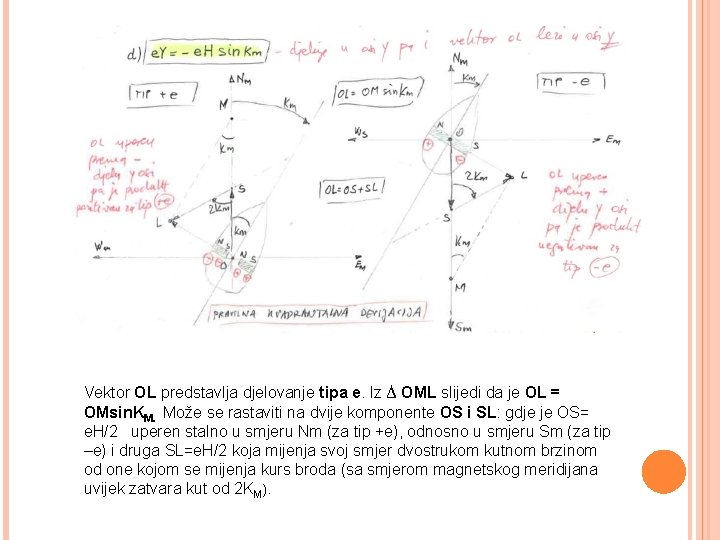 d.) eY = - eH sin Km - djeluje u osi Y pa i vektor OL leži u osi Y
TIP +e
Nm
M
Km
OL = OM sin Km
Nm
Km
TIP -e
Km
N
O
S
Em
OL uperen
prema -
djelu Y osi
pa je produkt
pozitivan za tip +e
2Km
S
L
OL = OS + SL
2Km
L
S
OL uperen
prema +
djelu Y osi
pa je produkt
negativan za
tip -e
Km
N
S
N
S
O
Em
Km
M
Sm
PRAVILNA KVADRANTALNA DEVIJACIJA
Vektor OL predstavlja djelovanje tipa e. Iz Δ OML slijedi da je OL =
OMsin.KM. Može se rastaviti na dvije komponente OS i SL: gdje je OS=
e.H/2 uperen stalno u smjeru Nm (za tip +e), odnosno u smjeru Sm (za tip
–e) i druga SL=e.H/2 koja mijenja svoj smjer dvostrukom kutnom brzinom
od one kojom se mijenja kurs broda (sa smjerom magnetskog meridijana
uvijek zatvara kut od 2 KM).